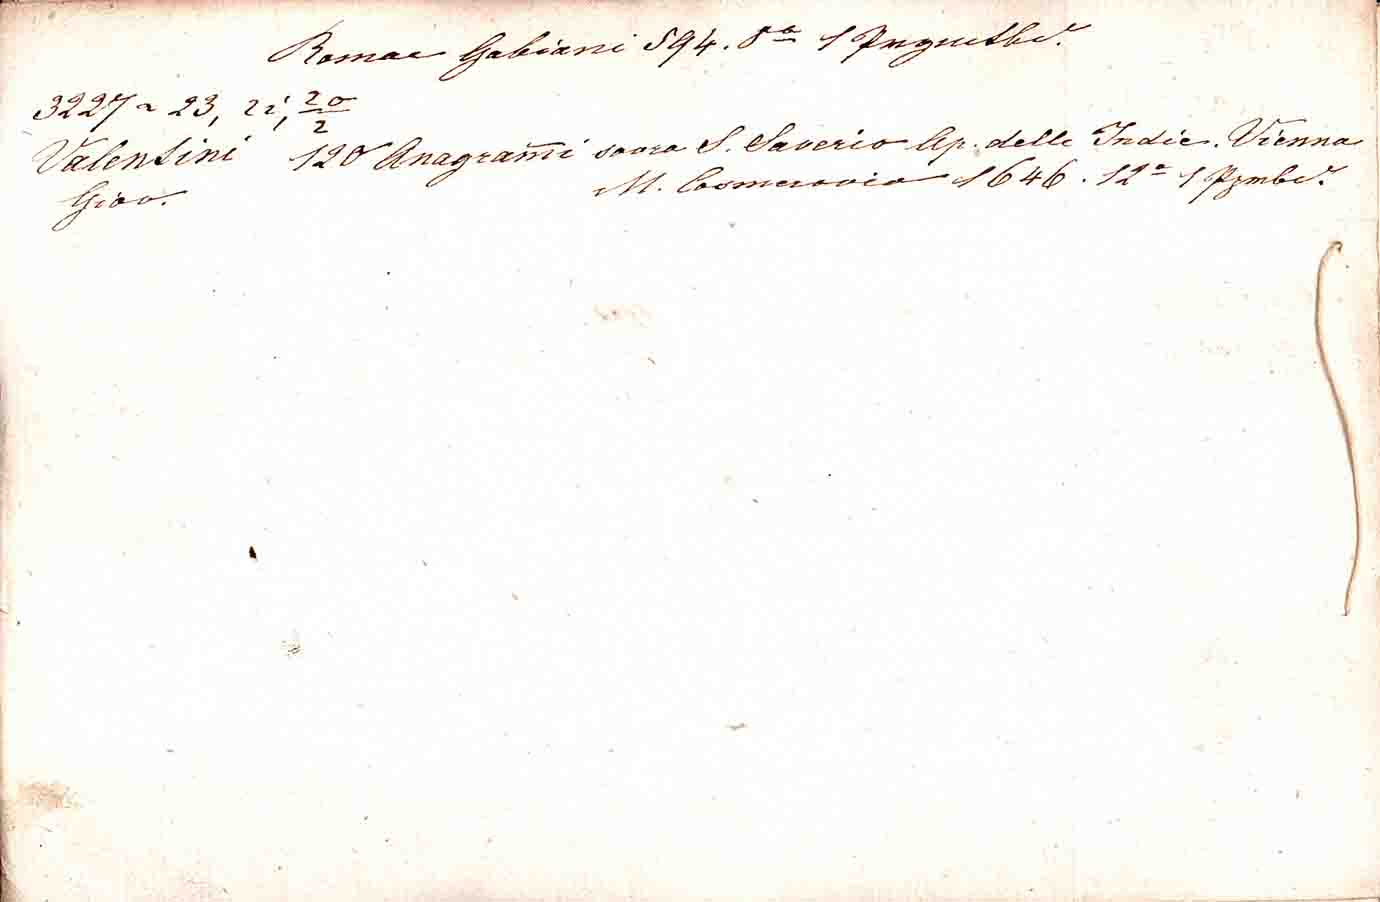 Romae Gabiani 594. 8ª 1 Prgmtbd.
3227 ~ 23, 22, 20/2
Valentini 120 Anagram̄i sovra S. Saverio Ap. delle Indie. Vienna
Giov. M. Cosmerovio 1646. 12ª 1 Pzmbd.